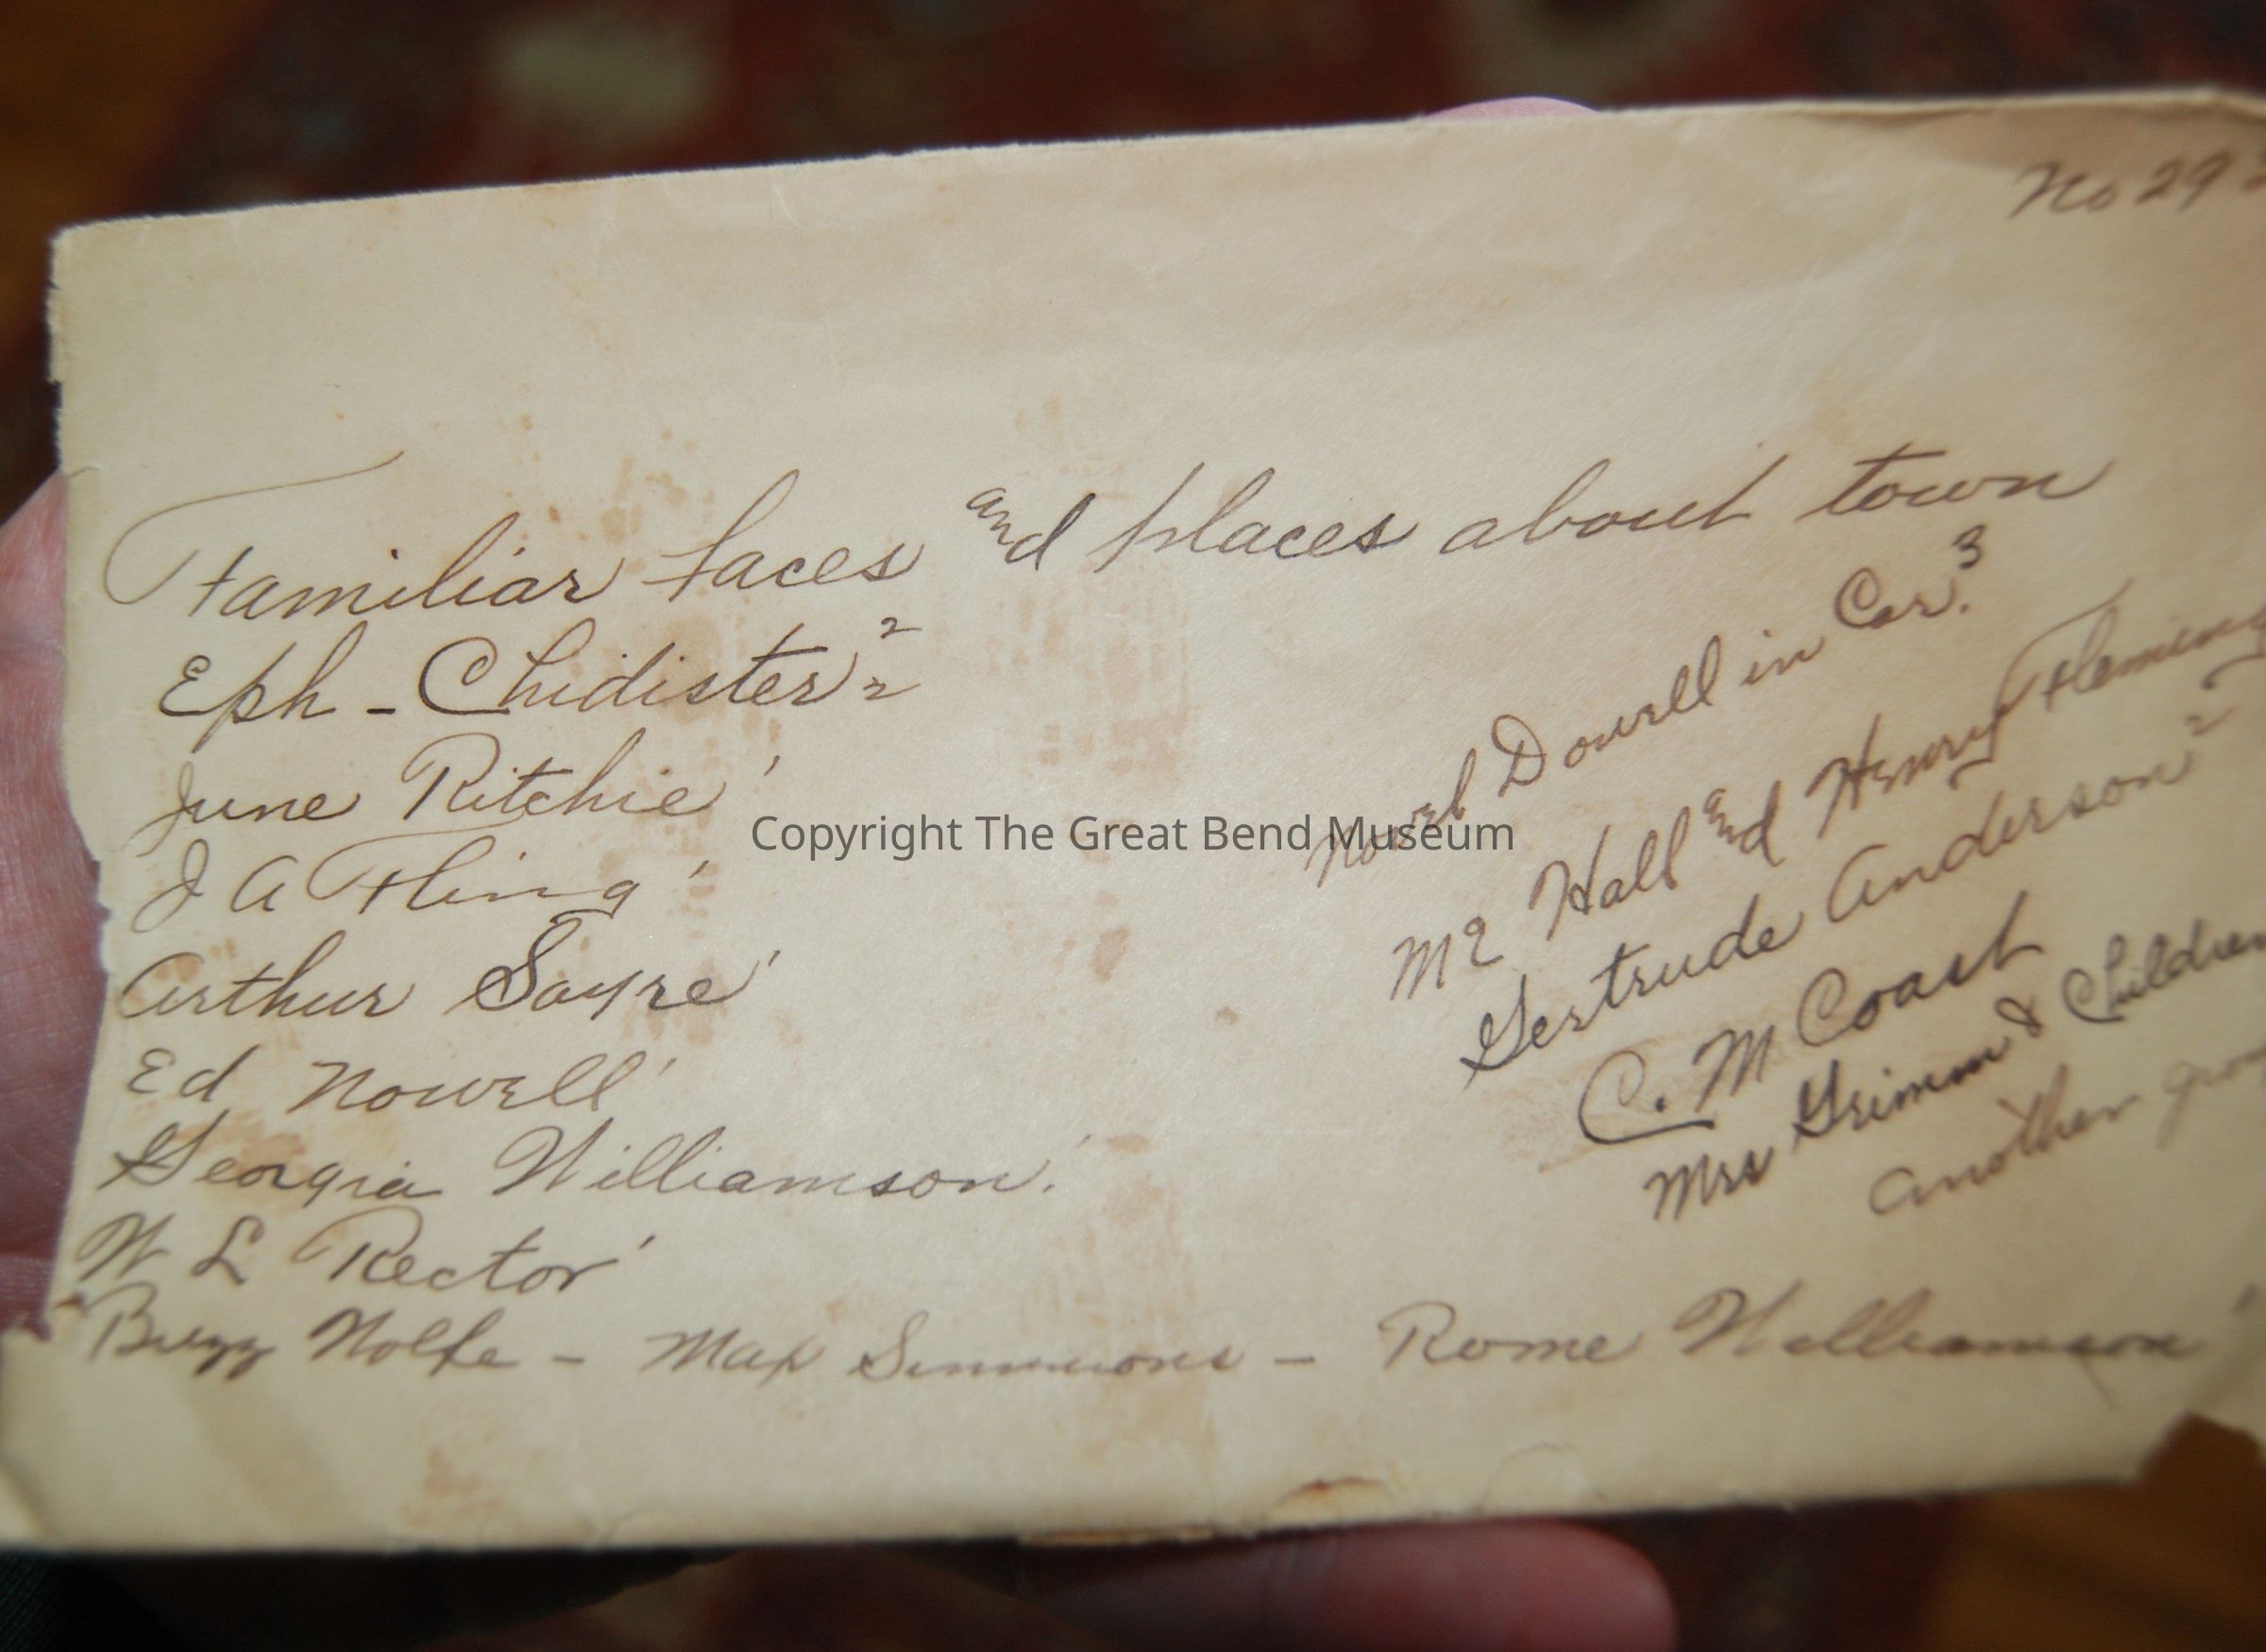 No 29
Familiar faces and places about town
Eph - Chidister 2 2
June Ritchie 1
J A Fling 1
Arthur Sayre 1
Ed Nowell 1
Georgia Williamson. 1
W L Rector 1
Buzz Wolfe - Max Simmons - Rome Williamson 1
Dowell in Car. 3
Mr Hall and Henry Fleming
Gertrude Anderson 2
C. M Coast
Mrs Grimm & Children
another
Copyright The Great Bend Museum